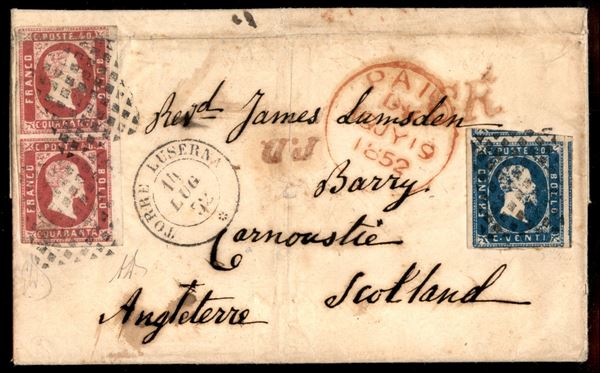 C. POSTE 40.
FRANCO
BOLLO
QUARANTA
C. POSTE 40.
FRANCO
BOLLO
C. QUARANTA
PAID
JY 19
1852
Revd James Lumsden
P.D.
TORRE LUSERNA
14
LUG
52
C. POSTE 20.
FRANCO
BOLLO
C. VENTI
Barry
Carnoustie
Scotland
Angleterre